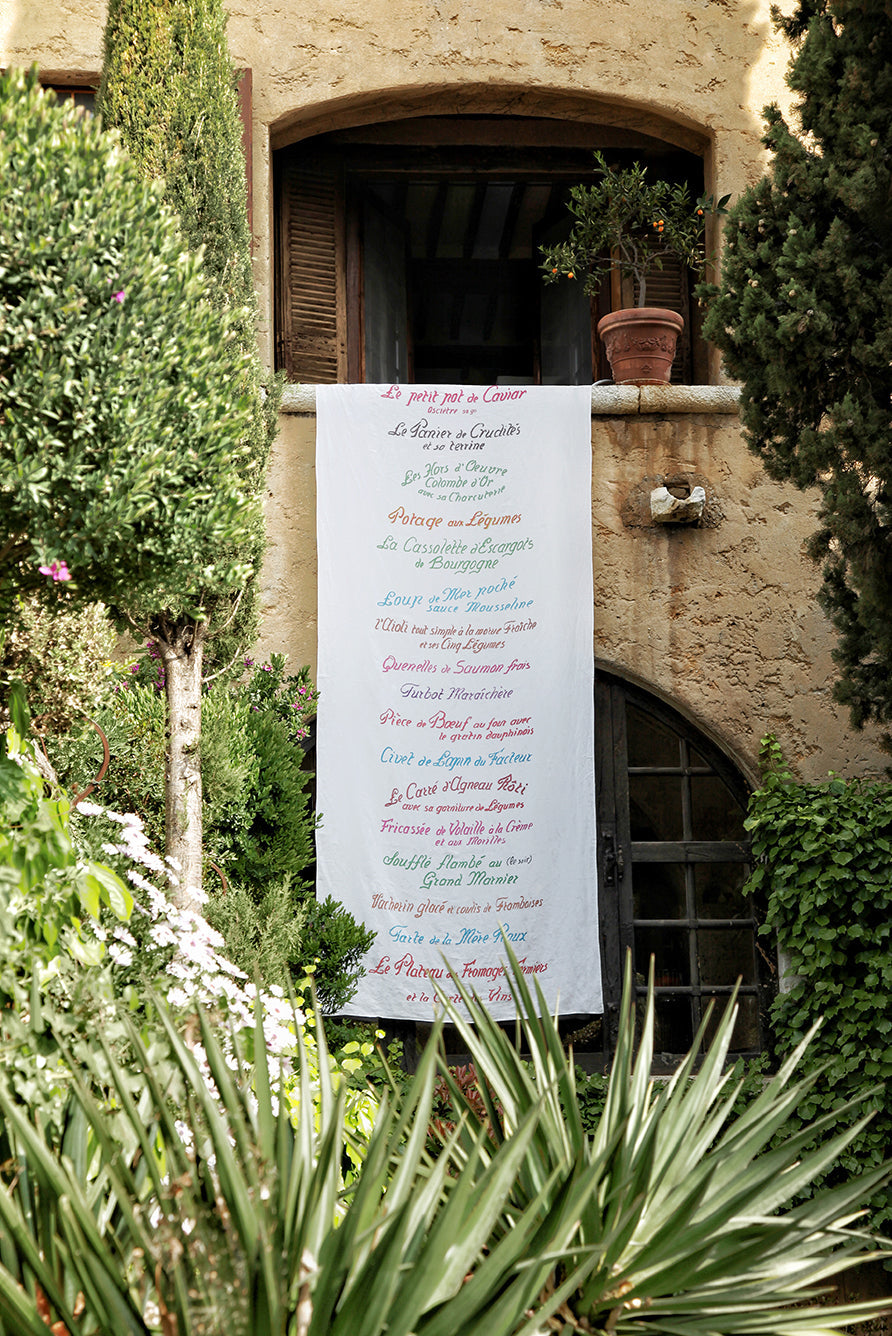 Le petit pot de Caviar
Osciètre 50 gr
Le Panier de Crudités
et sa terrine
Les Hors d'Oeuvre
Colombe d'Or
avec sa Charcuterie
Potage aux Légumes
La Cassolette d'Escargots
de Bourgogne
Loup de Mer poché
sauce Mousseline
l'Aïoli tout simple à la morue Fraîche
et ses Cinq Légumes
Quenelles de Saumon frais
Turbot Maraîchère
Pièce de Bœuf au four avec
le gratin dauphinois
Civet de Lapin du Facteur
Le Carré d'Agneau Rôti
avec sa garniture de Légumes
Fricassée de Volaille à la Crème
et aux Morilles
Soufflé flambé au (le soir)
Grand Marnier
Vacherin glacé et coulis de Framboises
Tarte de la Mère Roux
Le Plateau de Fromages Fermiers
et la Carte des Vins